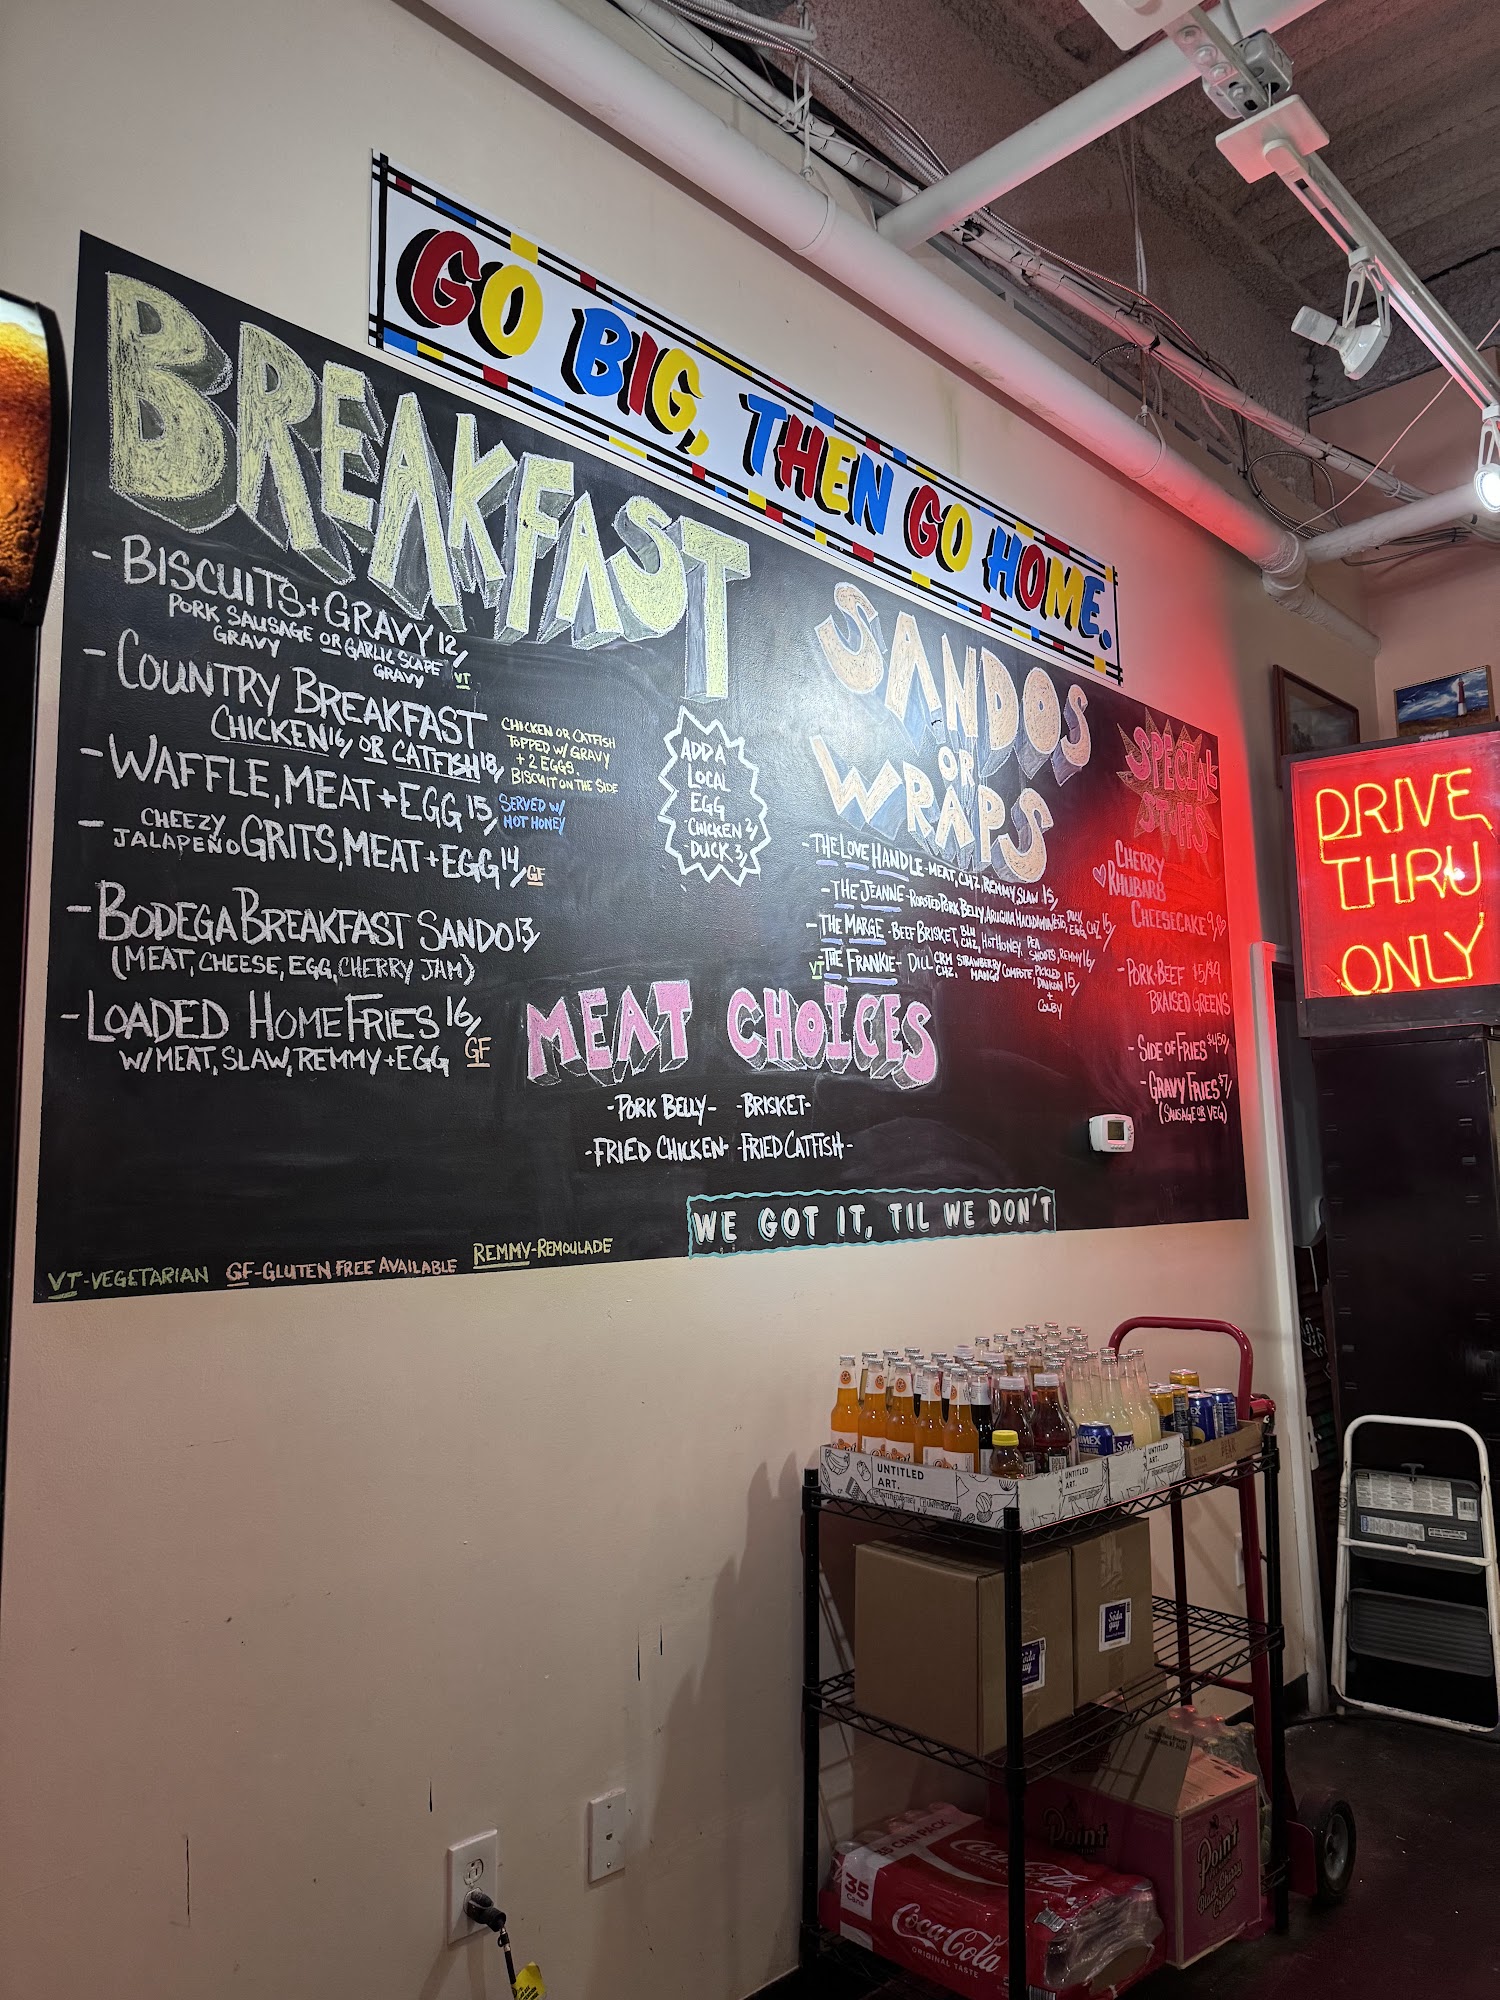 GO BIG, THEN GO HOME.
BREAKFAST
- BISCUITS + GRAVY 12/
PORK SAUSAGE OR GARLIC SCAPE
GRAVY GRAVY VT
- COUNTRY BREAKFAST
CHICKEN 16/ OR CATFISH 18/
CHICKEN OR CATFISH
TOPPED W/ GRAVY
+ 2 EGGS.
BISCUIT ON THE SIDE
- WAFFLE, MEAT + EGG 15/
SERVED W/
HOT HONEY
- CHEEZY
JALAPEÑO GRITS, MEAT + EGG 14/ GF
- BODEGA BREAKFAST SANDO 13/
(MEAT, CHEESE, EGG, CHERRY JAM)
- LOADED HOME FRIES 16/
W/ MEAT, SLAW, REMMY + EGG GF
ADD A
LOCAL
EGG
-CHICKEN 2/
-DUCK 3/
SANDOS
OR
WRAPS
- THE LOVE HANDLE - MEAT, CHZ, REMMY, SLAW 15/
- THE JEANNE - ROASTED PORK BELLY, ARUGULA MACADAMIA PESTO, DUCK EGG, CHZ 15/
- THE MARGE - BEEF BRISKET, BLU CHZ, HOT HONEY, PEA SHOOTS, REMMY 16/
VT - THE FRANKIE - DILL CRM CHZ, STRAWBERRY MANGO COMPOTE, PICKLED DAIKON 15/
+
COLBY
MEAT CHOICES
-PORK BELLY- -BRISKET-
-FRIED CHICKEN- -FRIED CATFISH-
SPECIAL
STUFFS
CHERRY
RHUBARB
CHEESECAKE 9/
- PORK-BEEF $5/$9
BRAISED GREENS
- SIDE OF FRIES $4.50/
- GRAVY FRIES $7/
(SAUSAGE OR VEG)
WE GOT IT, TIL WE DON'T
VT-VEGETARIAN GF-GLUTEN FREE AVAILABLE REMMY-REMOULADE
DRIVE
THRU
ONLY
UNTITLED
ART.
UNTITLED
ART.
UNTITLED
ART.
Soda
guy
35
Cans
Coca-Cola
Coca-Cola
ORIGINAL TASTE
Point
Point
Black Cherry
Cream